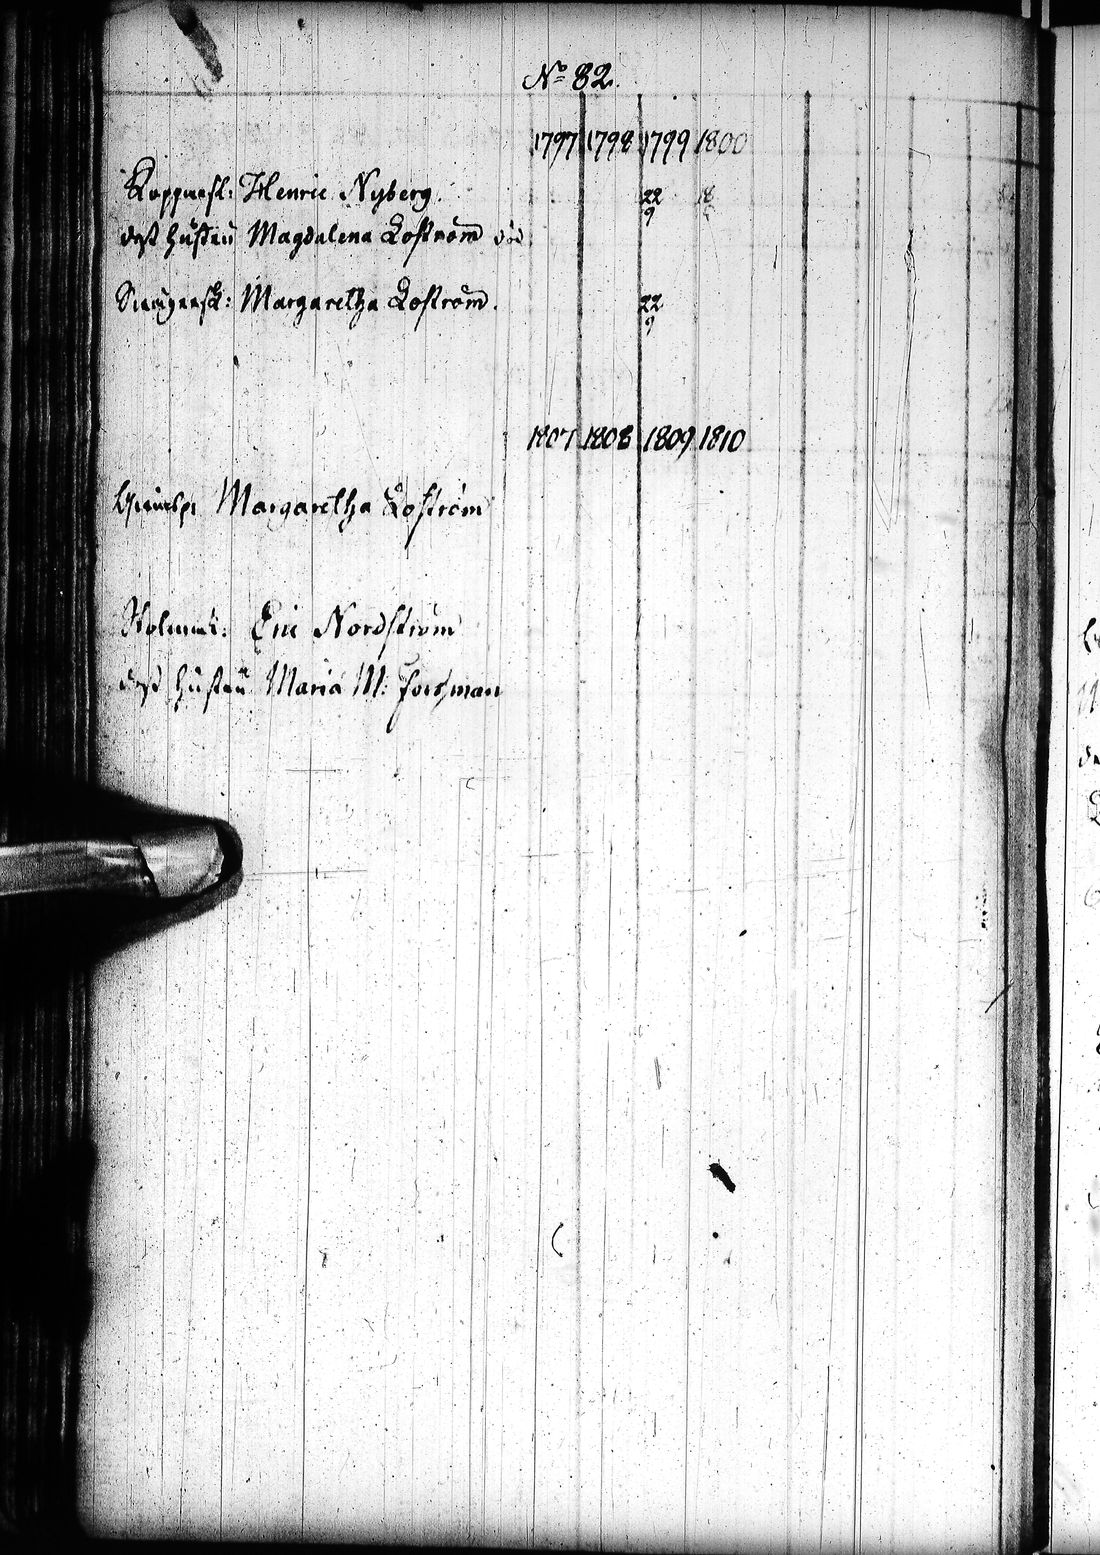 No 82.
1797 1798 1799 1800
Kopparsl: Henric Nyberg. 22 18
9 5
dess hustru Magdalena Loström död
Margaretha Loström. 22
9
1807 1808 1809 1810
Margaretha Loström
Eric Nordström
dess hustru Maria M: Forsman